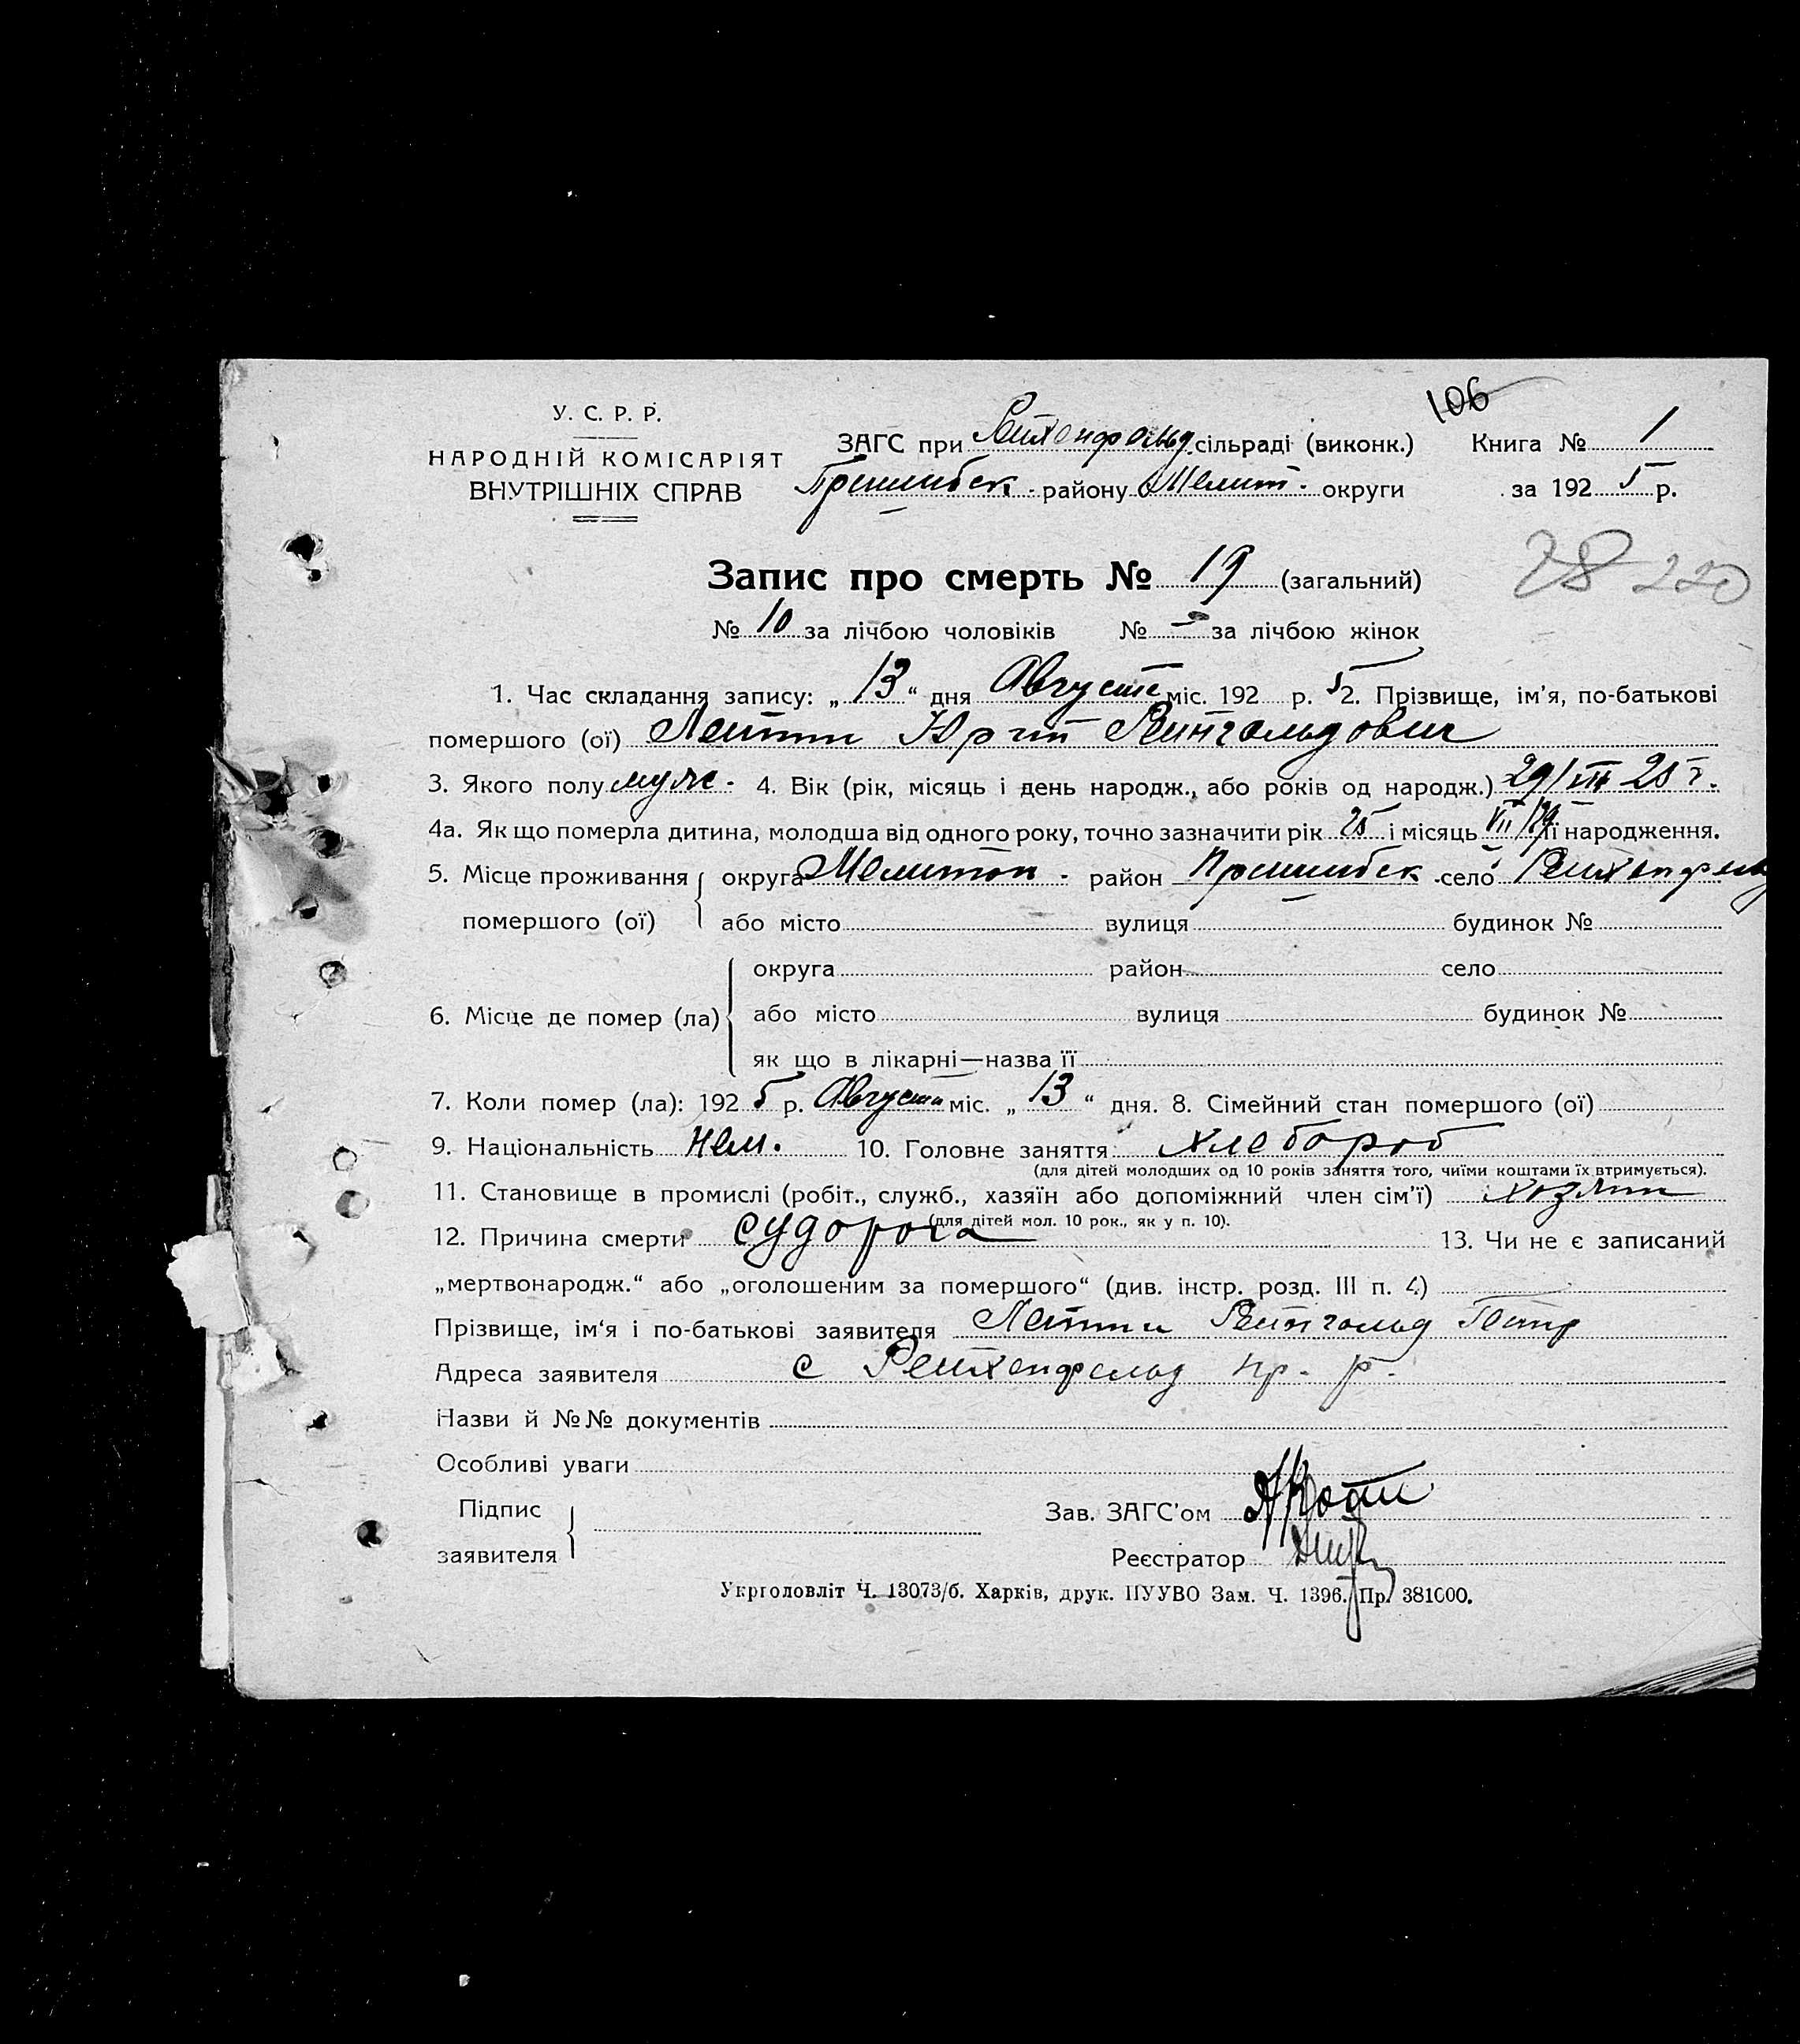 106
У. С. Р. Р.
НАРОДНІЙ КОМІСАРІЯТ
ВНУТРІШНІХ СПРАВ
ЗАГС при Рейхенфельд. сільраді (виконк.) Книга № 1
Пришибск. району Мелит. округи за 192 5 р.
28 220
Запис про смерть № 19 (загальний)
№ 10 за лічбою чоловіків № – за лічбою жінок
1. Час складання запису: „ 13 “ дня Августа міс. 192 р. 5 2. Прізвище, ім’я, по-батькові
помершого (ої) Рейнгольдович
3. Якого полу муж. 4. Вік (рік, місяць і день народж., або років од народж.) 29/VII 25 г.
4а. Як що померла дитина, молодша від одного року, точно зазначити рік 25 і місяць VII/29 її народження.
5. Місце проживання округа Мелитоп. район Пришибск. село Рейхенфельд
помершого (ої) або місто вулиця будинок №
округа район село
6. Місце де помер (ла) або місто вулиця будинок №
як що в лікарні—назва її
7. Коли помер (ла): 192 5 р. Августа міс. „ 13 “ дня. 8. Сімейний стан помершого (ої)
9. Національність нем. 10. Головне заняття хлебороб
(для дітей молодших од 10 років заняття того, чиїми коштами їх втримується).
11. Становище в промислі (робіт., служб., хазяїн або допоміжний член сім’ї) хозяин
(для дітей мол. 10 рок., як у п. 10).
12. Причина смерти судорога 13. Чи не є записаний
„мертвонародж.“ або „оголошеним за помершого“ (див. інстр. розд. III п. 4)
Прізвище, ім‘я і по-батькові заявителя Рейнгольд Петр
Адреса заявителя с Рейхенфельд пр. р.
Назви й №№ документів
Особливі уваги
Підпис
заявителя
Зав. ЗАГС'ом
Реєстратор
Укрголовліт Ч. 13073/б. Харків, друк. ПУУВО Зам. Ч. 1396. Пр. 381000.